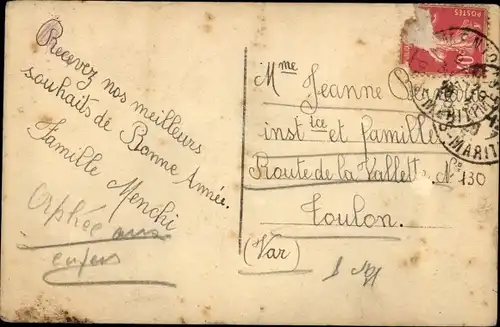 Recevez nos meilleurs
souhaits de Bonne Année.
Famille Menchi
Orphée aux
enfers
POSTES
Mme Jeanne
instice et famille
Route de la Vallette No 130
Toulon.
(Var)
MARITI